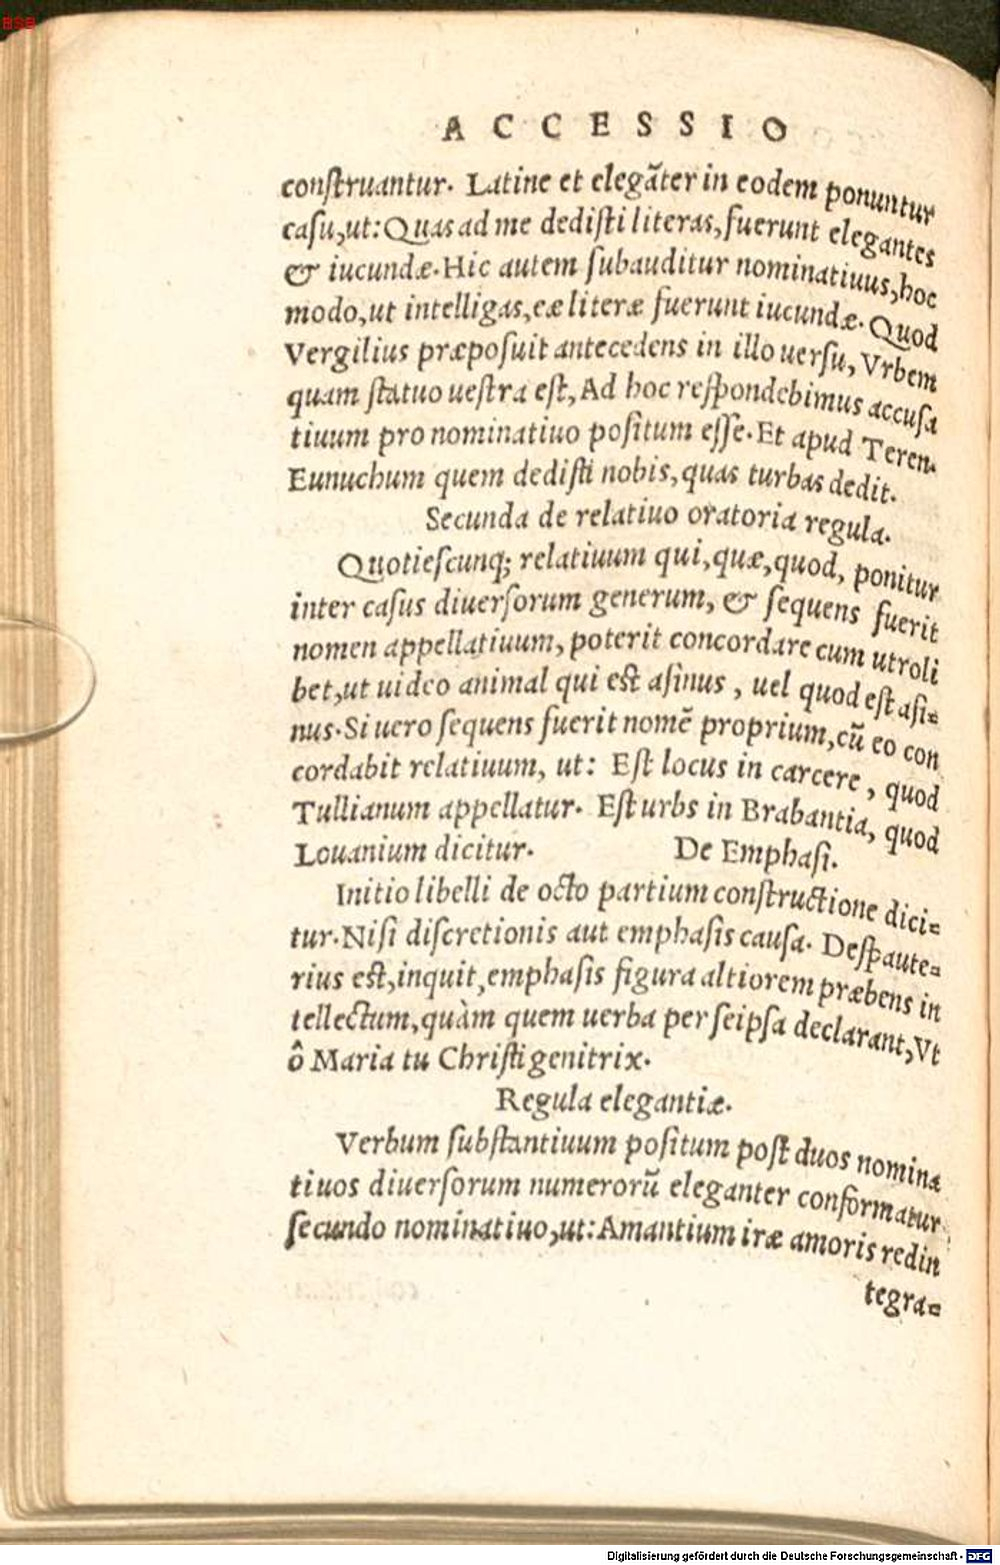 BSB
ACCESSIO
construantur. Latine et elegãter in eodem ponuntur
casu, ut: Quas ad me dedisti literas, fuerunt elegantes
& iucundæ. Hic autem subauditur nominatiuus, hoc
modo, ut intelligas, eæ literæ fuerunt iucundæ. Quod
Vergilius præposuit antecedens in illo uersu, Vrbem
quam statuo uestra est, Ad hoc respondebimus accusa
tiuum pro nominatiuo positum esse. Et apud Teren.
Eunuchum quem dedisti nobis, quas turbas dedit.
Secunda de relatiuo oratoria regula.
Quotiescunq; relatiuum qui, quæ, quod, ponitur
inter casus diuersorum generum, & sequens fuerit
nomen appellatiuum, poterit concordare cum utroli
bet, ut uideo animal qui est asinus, uel quod est asi=
nus. Si uero sequens fuerit nomẽ proprium, cũ eo con
cordabit relatiuum, ut: Est locus in carcere, quod
Tullianum appellatur. Est urbs in Brabantia, quod
Louanium dicitur. De Emphasi.
Initio libelli de octo partium constructione dici=
tur. Nisi discretionis aut emphasis causa. Despaute=
rius est, inquit, emphasis figura altiorem præbens in
tellectum, quàm quem uerba per seipsa declarant, Vt
ô Maria tu Christi genitrix.
Regula elegantiæ.
Verbum substantiuum positum post duos nomina
tiuos diuersorum numerorũ eleganter conformatur
secundo nominatiuo, ut: Amantium iræ amoris redin
tegra=
Digitalisierung gefördert durch die Deutsche Forschungsgemeinschaft - DFG